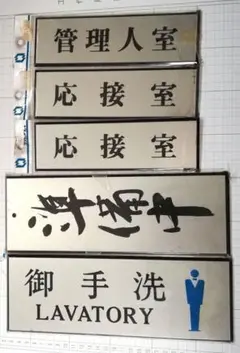 管理人室
応接室
応接室
準備中
御手洗
LAVATORY